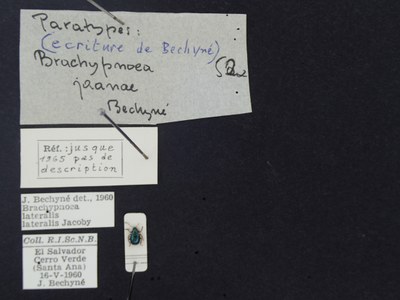 Paratypes:
(ecriture de Bechyné)
Brachypnoea
jaanae
Bechyné
Réf.: jusque
1965 pas de
description
J. Bechyné det., 1960
Brachypnoea
lateralis
lateralis Jacoby
Coll. R.I.Sc.N.B.
El Salvador
Cerro Verde
(Santa Ana)
16-V-1960
J. Bechyné